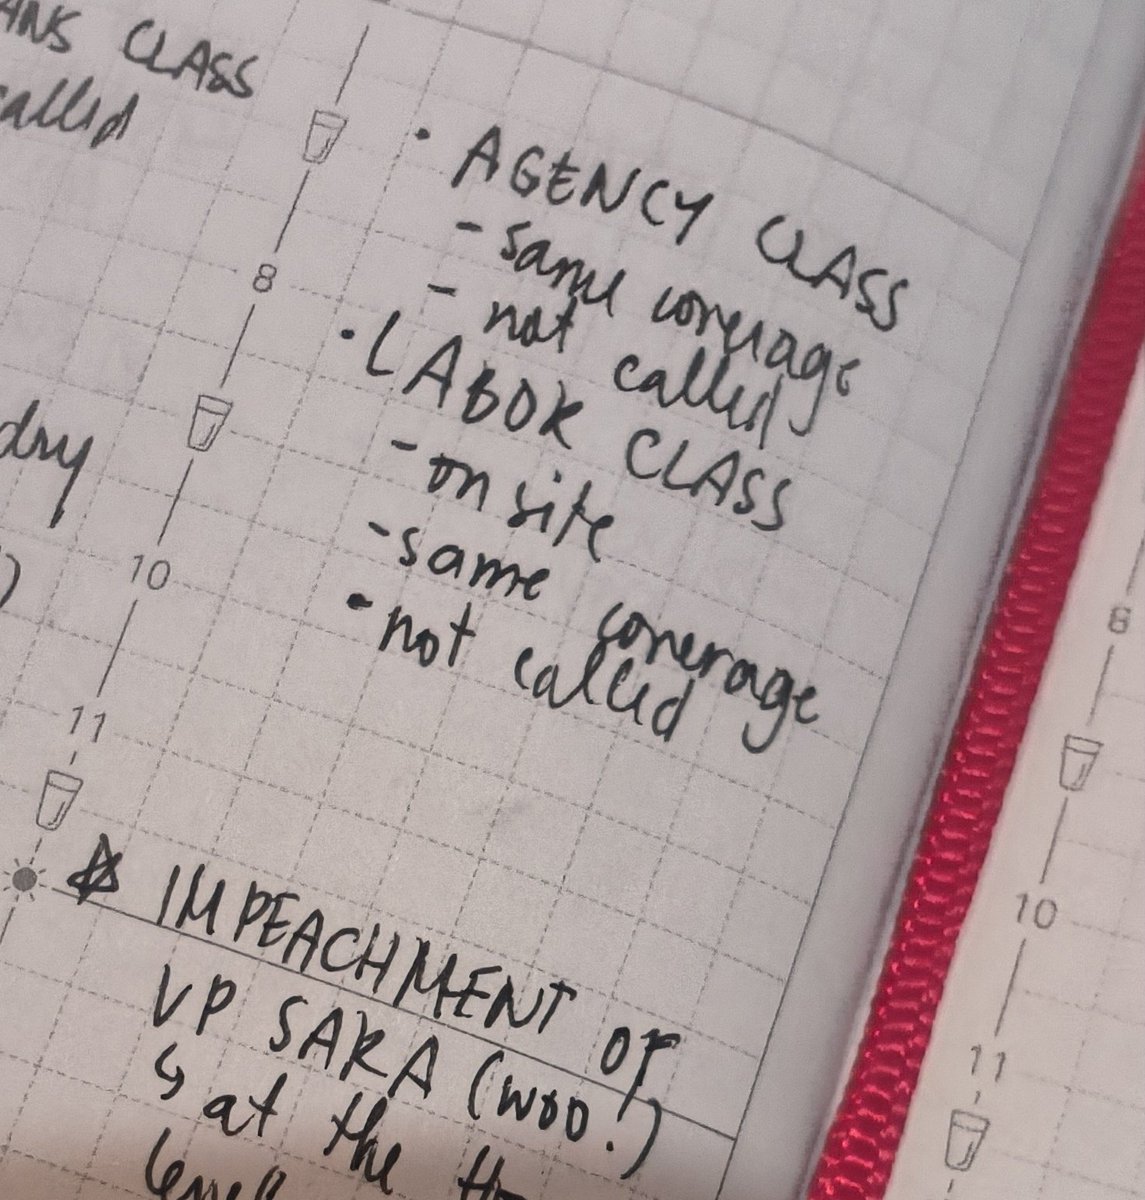 CLASS
called
• AGENCY CLASS
- same coverage
- not called
8
• LABOR CLASS
- on site
dry
- same coverage
10
• not called
11
IMPEACHMENT OF
VP SARA (woo!)
↳ at the
level
8
10
11